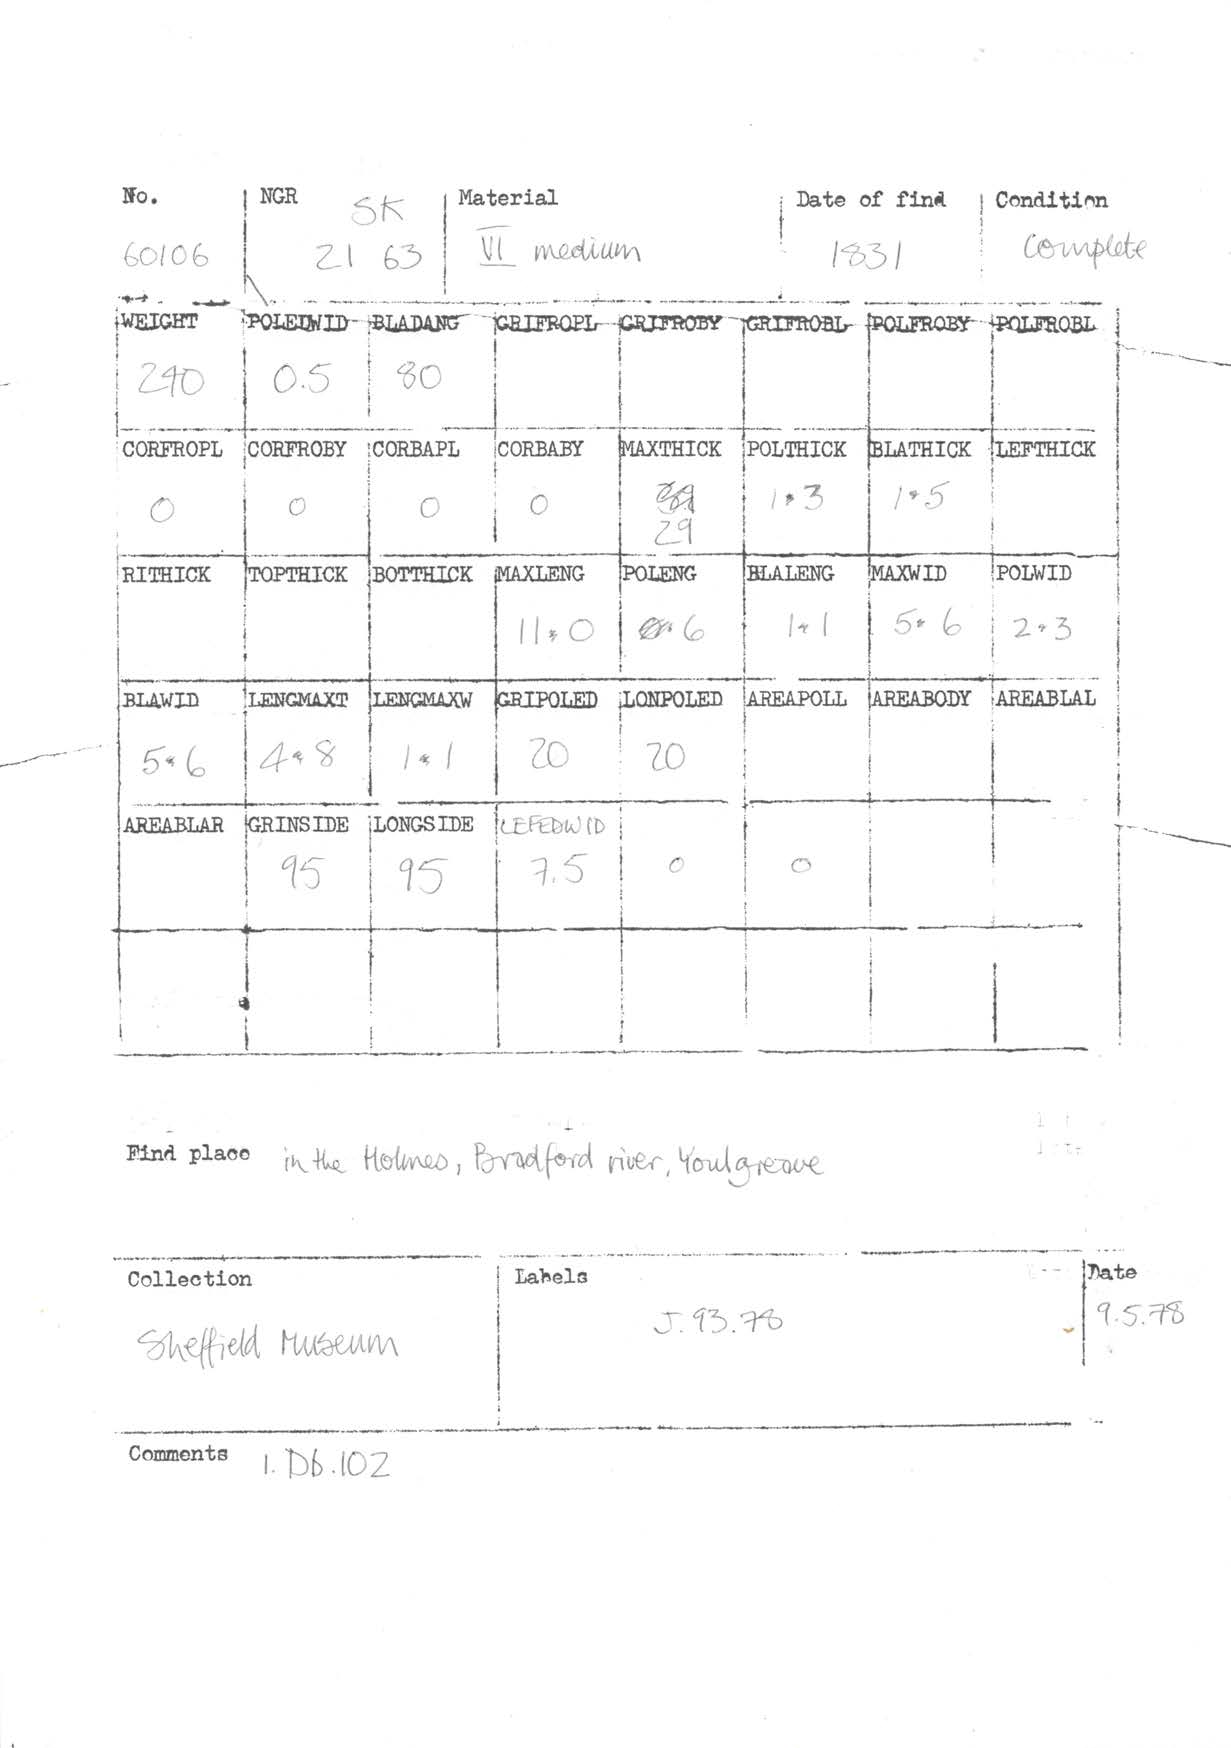 No. NGR Material Date of find Condition
SK
60106 21 63 VI medium 1831 Complete
WEIGHT POLEDWID BLADANG GRIFROPL GRIFROBY GRIFROBL POLFROBY POLFROBL
240 0.5 80
CORFROPL CORFROBY CORBAPL CORBABY MAXTHICK POLTHICK BLATHICK LEFTHICK
0 0 0 0 1.3 1.5
29
RITHICK TOPTHICK BOTTHICK MAXLENG POLENG BLALENG MAXWID POLWID
11.0 .6 1.1 5.6 2.3
BLAWID LENGMAXT LENGMAXW GRIPOLED LONPOLED AREAPOLL AREABODY AREABLAL
5.6 4.8 1.1 20 20
AREABLAR GRINSIDE LONGSIDE LEFEDWID
95 95 7.5 0 0
Find place in the Holmes, Bradford river, Youlgreave
Collection Labels Date
Sheffield Museum J.93.78 9.5.78
Comments 1.Db.102